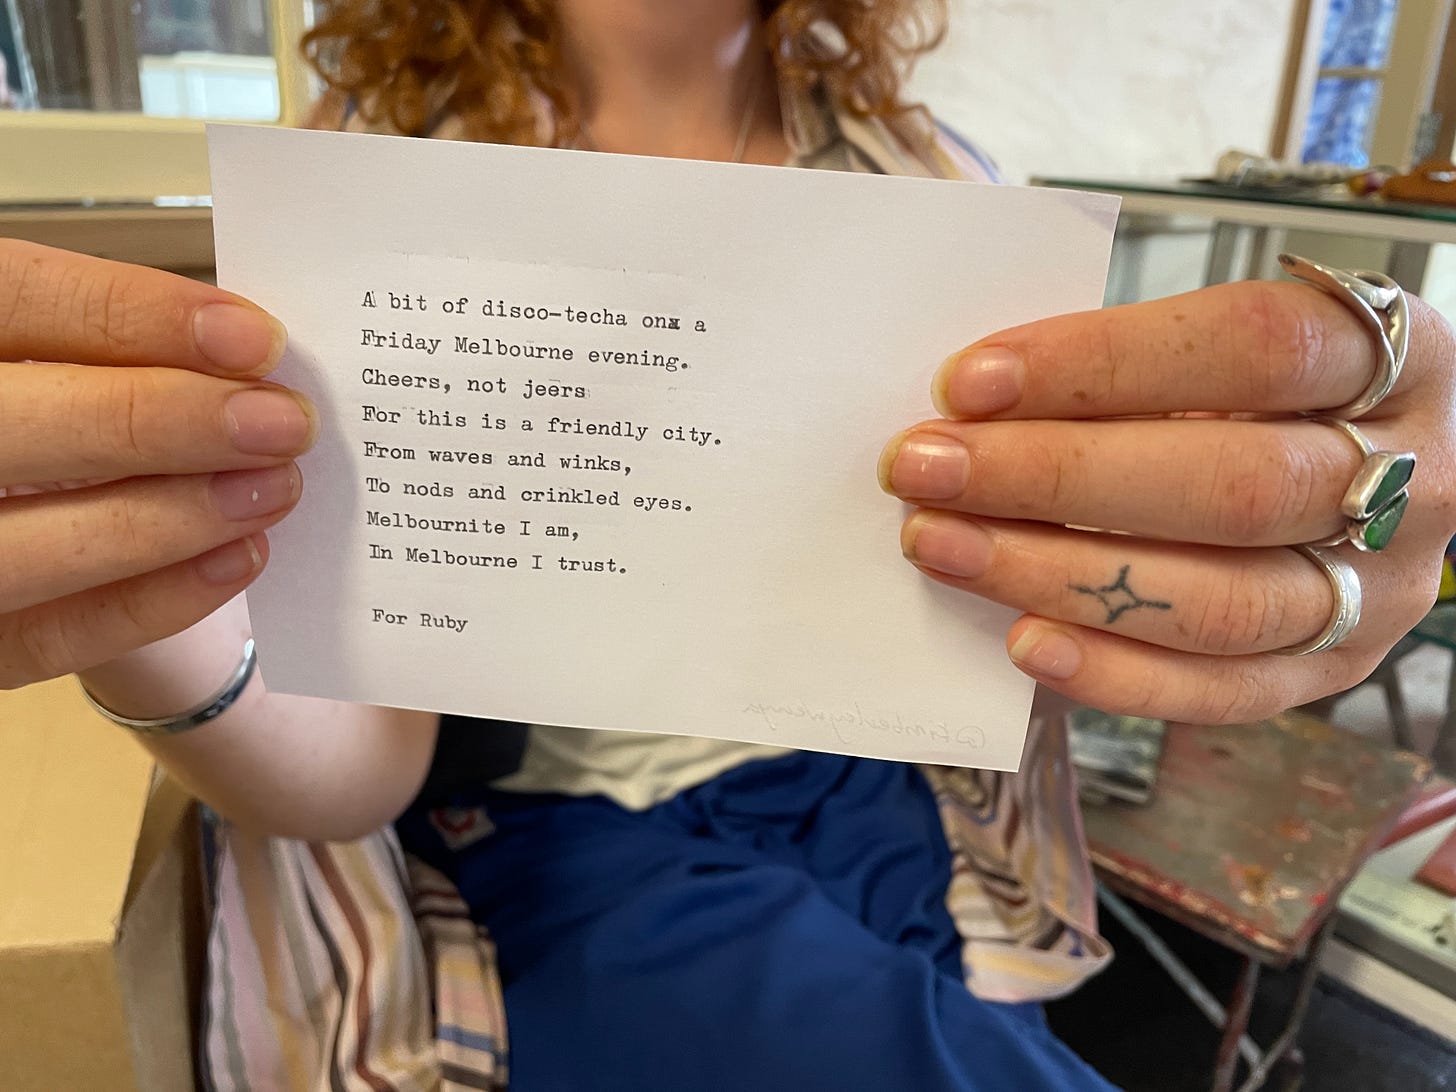 A bit of disco-techa onx a
Friday Melbourne evening.
Cheers, not jeers
For this is a friendly city.
From waves and winks,
To nods and crinkled eyes.
Melbournite I am,
In Melbourne I trust.
For Ruby